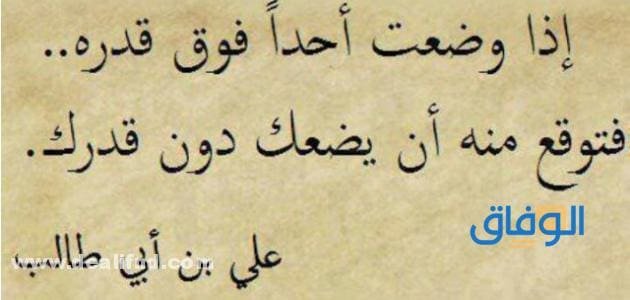 إذا وضعت أحداً فوق قدره..
فتوقع منه أن يضعك دون قدرك.
الوفاق
علي بن أبي طالب